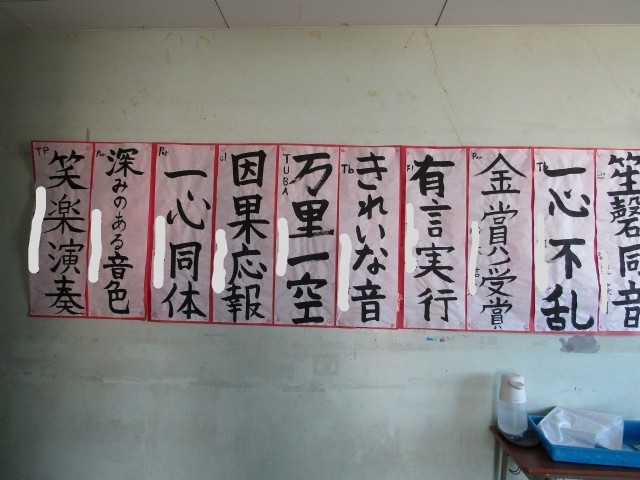 TP
笑楽演奏
深みのある音色
Per
一心同体
因果応報
TUBA
万里一空
Tb
きれいな音
Fl
有言実行
Per
金賞受賞
Tb
一心不乱
笙磬同音